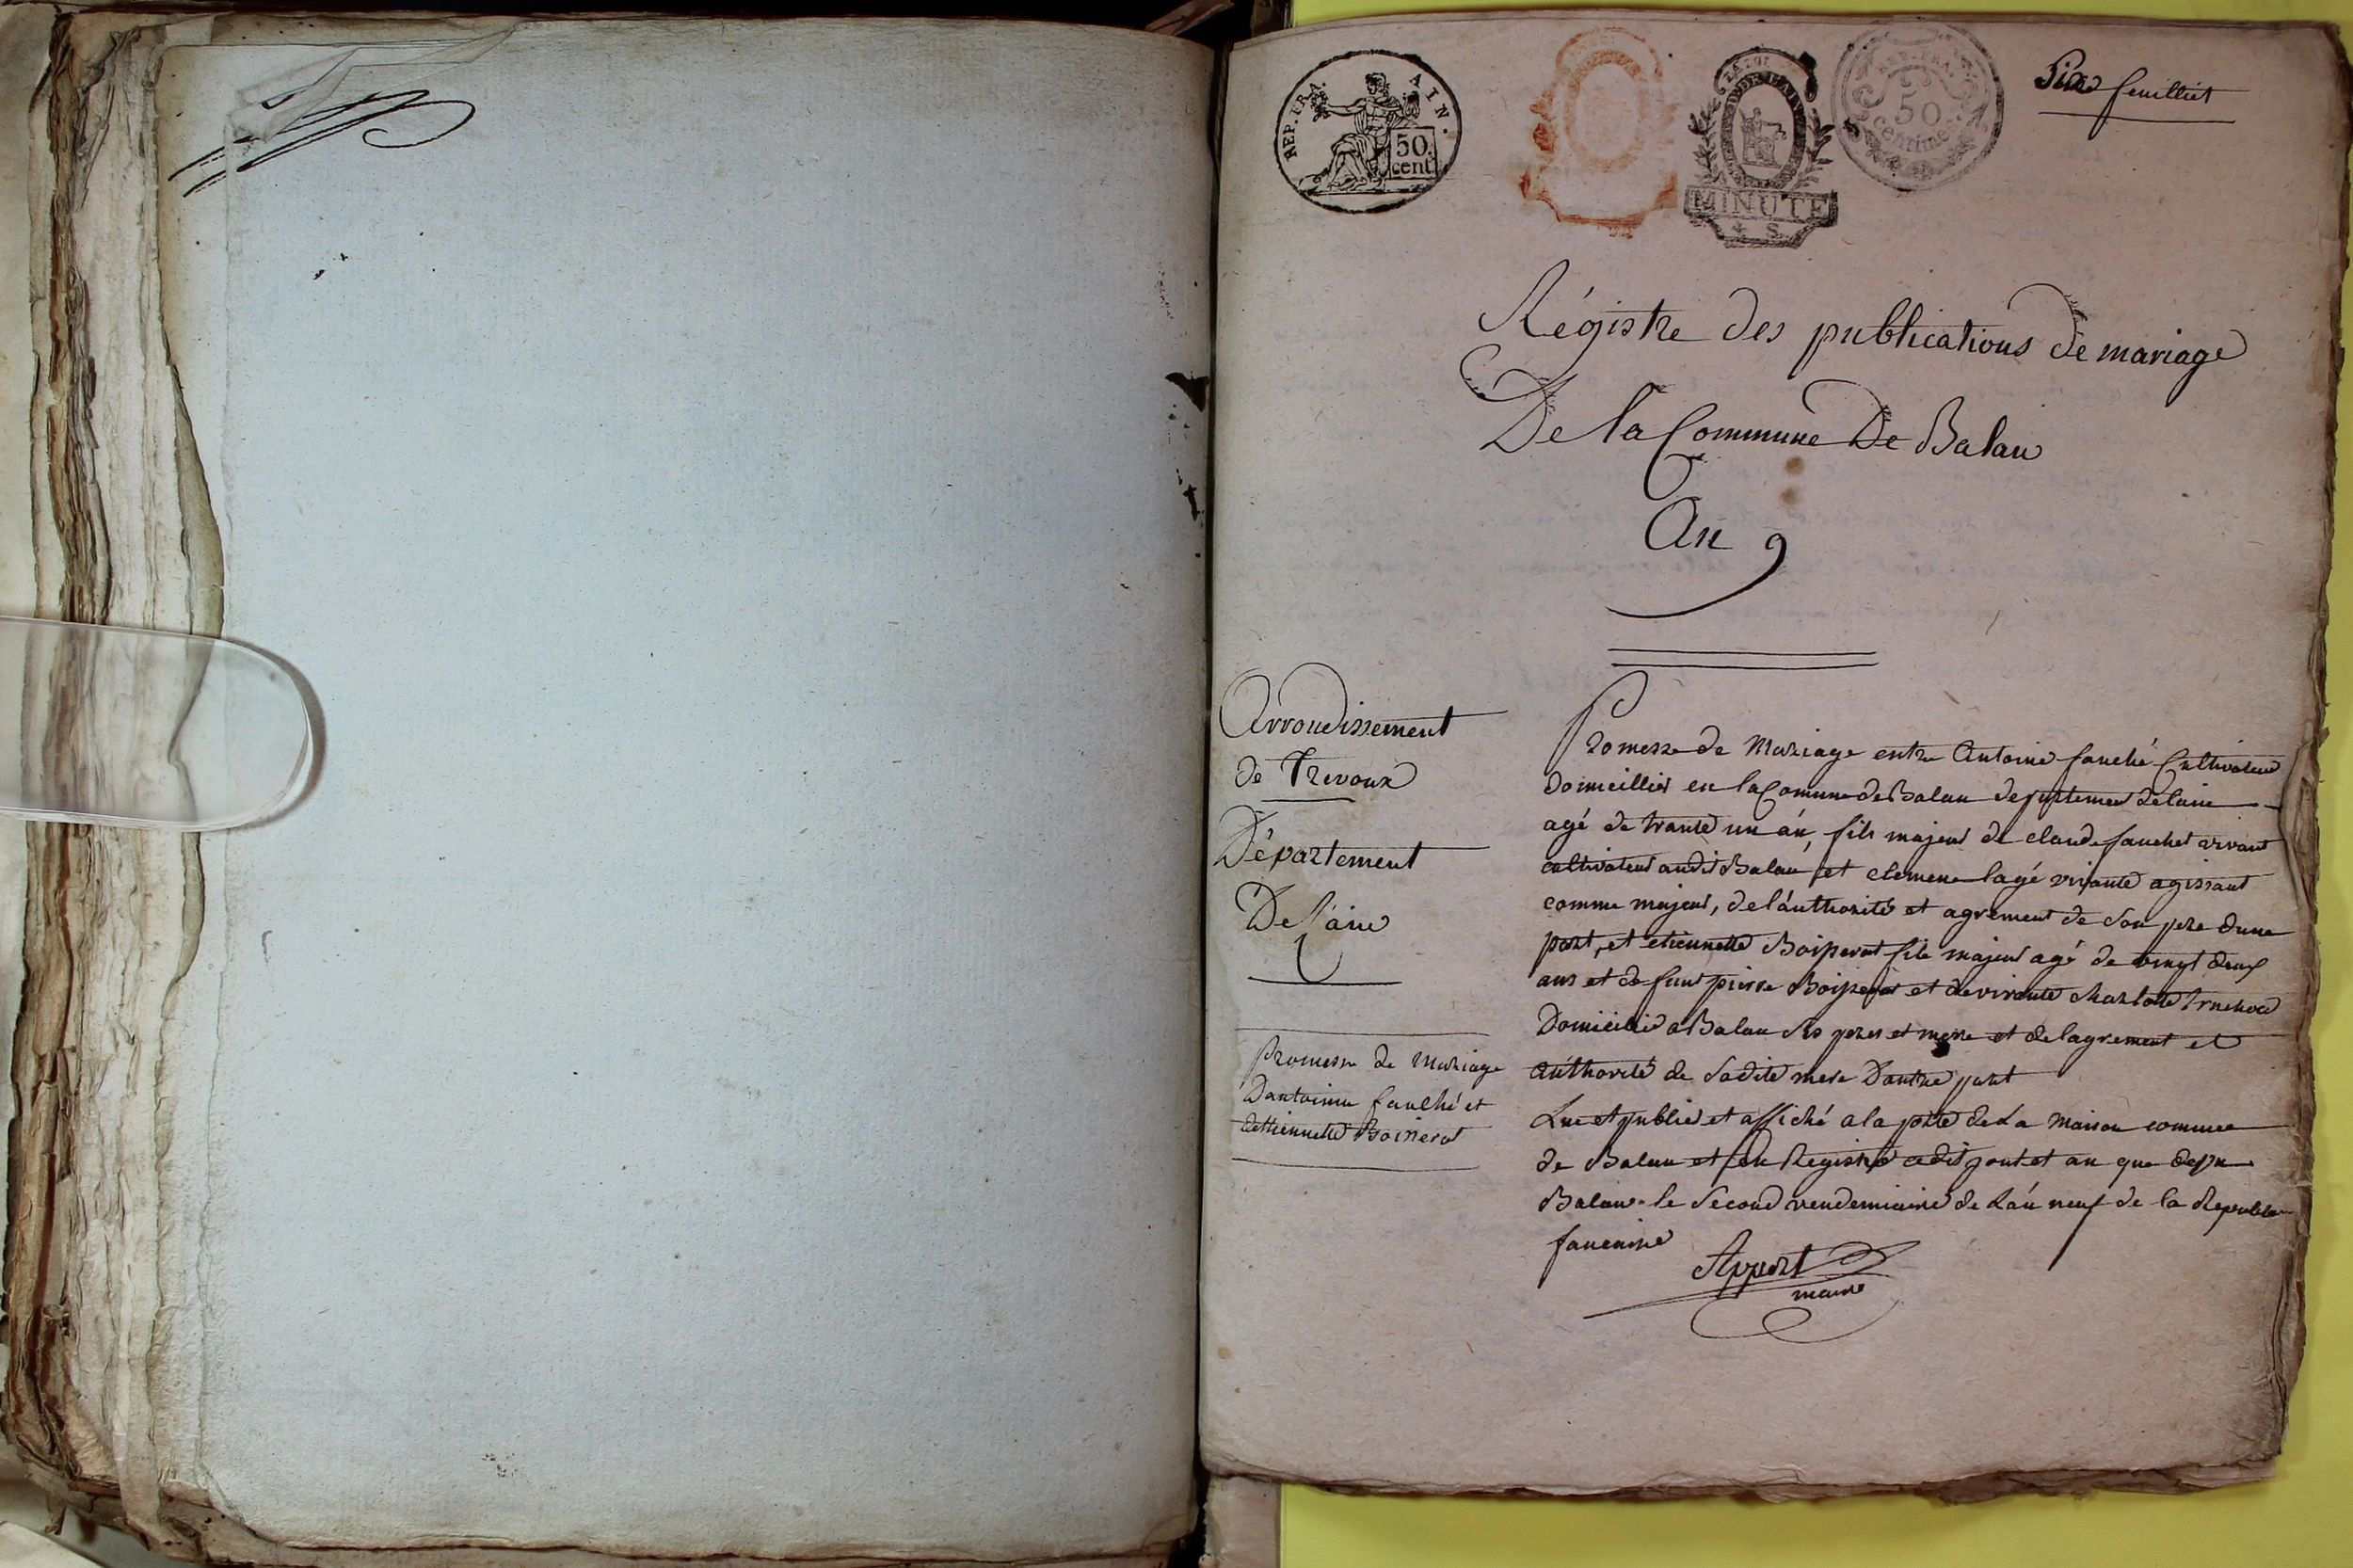 REP. FRA. AIN.
50
cent.
MINUTE
50
centime
feuilliet
Régistre des publications de mariage
De la Commune De Balan
An 9
Arrondissement
de Trevoux
Département
De l'ain
Promesse de Mariage
Dantoinne fauché et
detiennette Boisserat
Promesse de Mariage entre Antoine fauché Cultivateur
domicillier en la Comune de Balan departement de lain
agé de trante un án, fils majeur de claude fauchet vivant
cultivateur audit Balan et clemence lagé vivante agissant
comme majeur, de láuthorité et agrement de son pere dune
part, et etiennette majeur agé de vingt deux
ans et de feut pierre et de vivante charlotte
Domicilié a Balan ses peres et mere et de lagrement et
aúthorité de sadite mere Dautre part
Lue et publié et affiché a la porte de La maison commune
de Balan et sur Registre et an que
Balan le second vendemiaire de Lán neuf de la Republi
Appert
maire